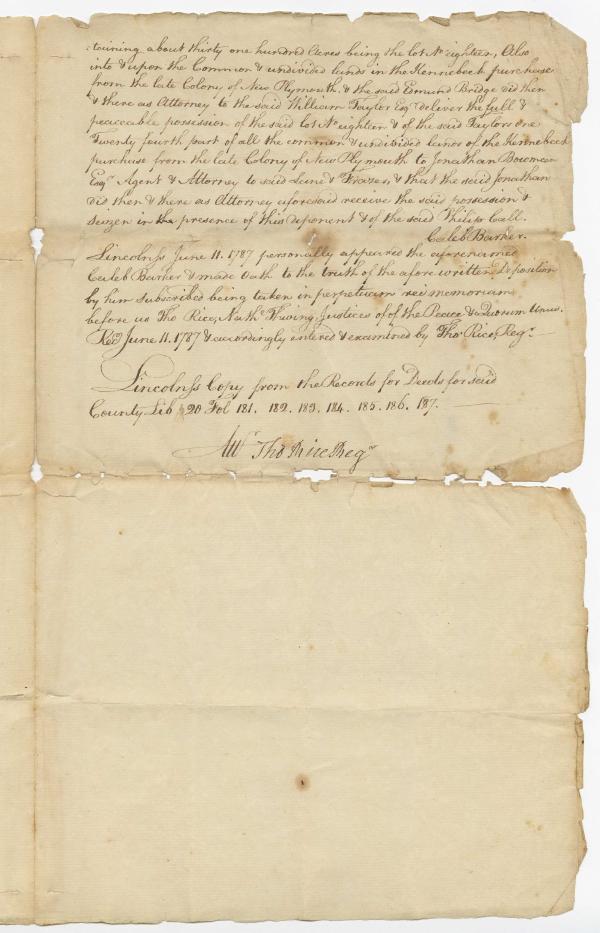 :taining about thirty one hundred Acres being the lot No eighteen, Also
into & upon the Common & undivided lands in the Kennebeck purchase
from the late Colony of New Plymouth. & the said Edmund Bridge did then
& there as Attorney to the said William Taylor Esqr deliver the full &
peaceable possession of the said lot No eighteen & of the said Taylors one
Twenty fourth part of all the common & undivided lands of the Kennebeck
purchase from the late Colony of New Plymouth to Jonathan Bowman
Esqr Agent & Attorney to said Lane & Frazer, & that the said Jonathan
did then & there as Attorney aforesaid receive the said possession &
seizen in the presence of this deponent & of the said Philip Call.
Caleb Barker.
Lincoln ss June 11. 1787 personally appeared the aforenamed
Caleb Barker & made Oath to the truth of the afore written Deposition
by him subscribed being taken in perpetuam rei memoriam
before us Tho Rice, Nathl Thwing, Justices of of the Peace & Quorum Unus.
Recd June 11. 1787 & accordingly entered & examined by Thos Rice, Regr
Lincoln ss Copy from the Records for Deeds for said
County Lib 20 Fol 181. 182. 183. 184. 185. 186. 187.
Attr Tho Rice Regr